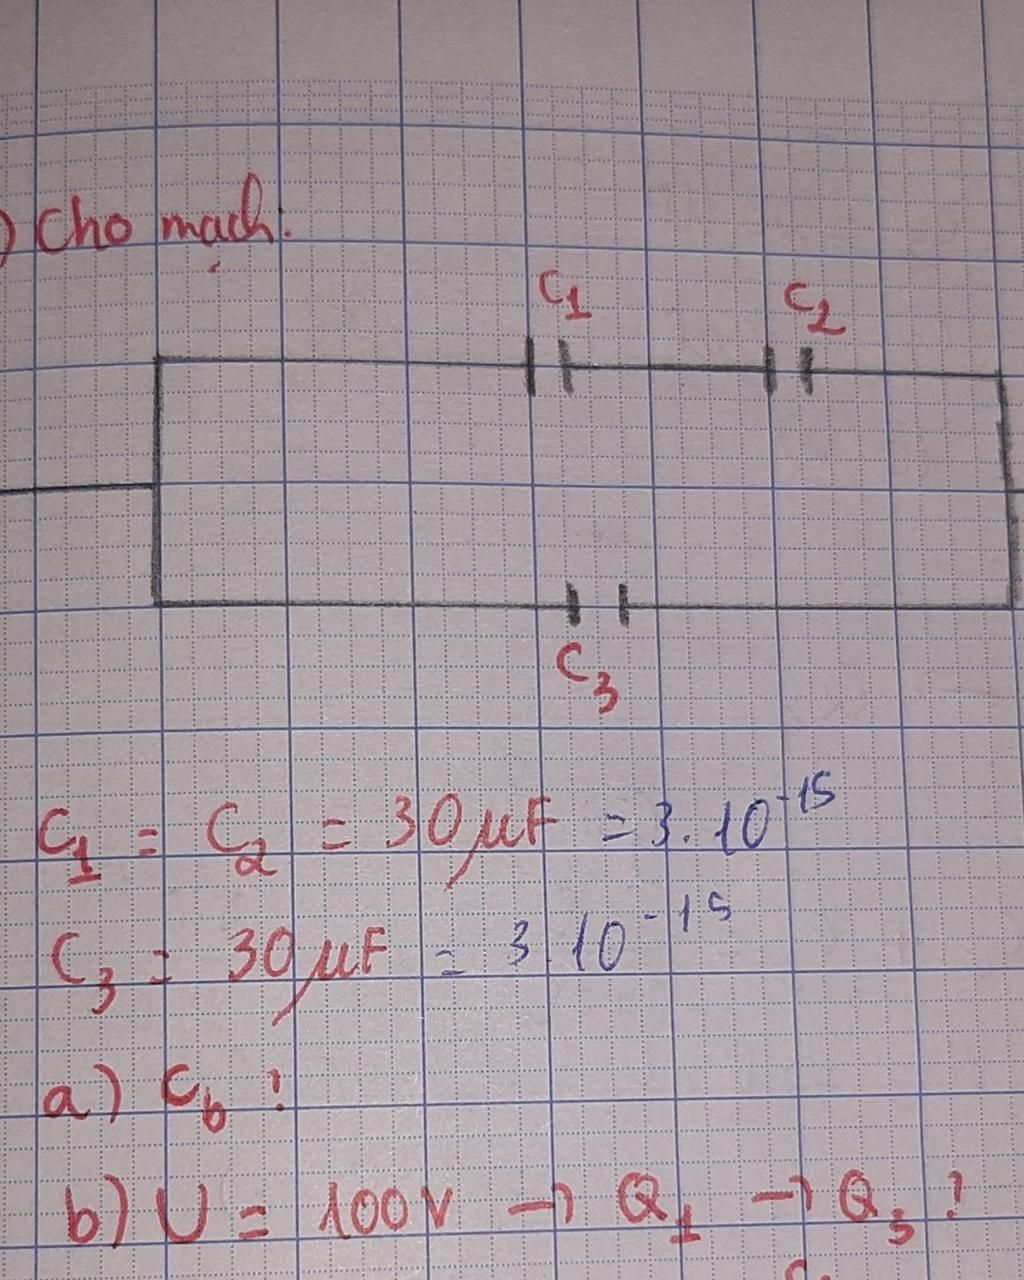 ) Cho mạch:
C1 C2
C3
C1 = C2 = 30 μF = 3.10^-15
C3 = 30 μF = 3.10^-15
a) Cb ?
b) U = 100V → Q1 → Q3 ?